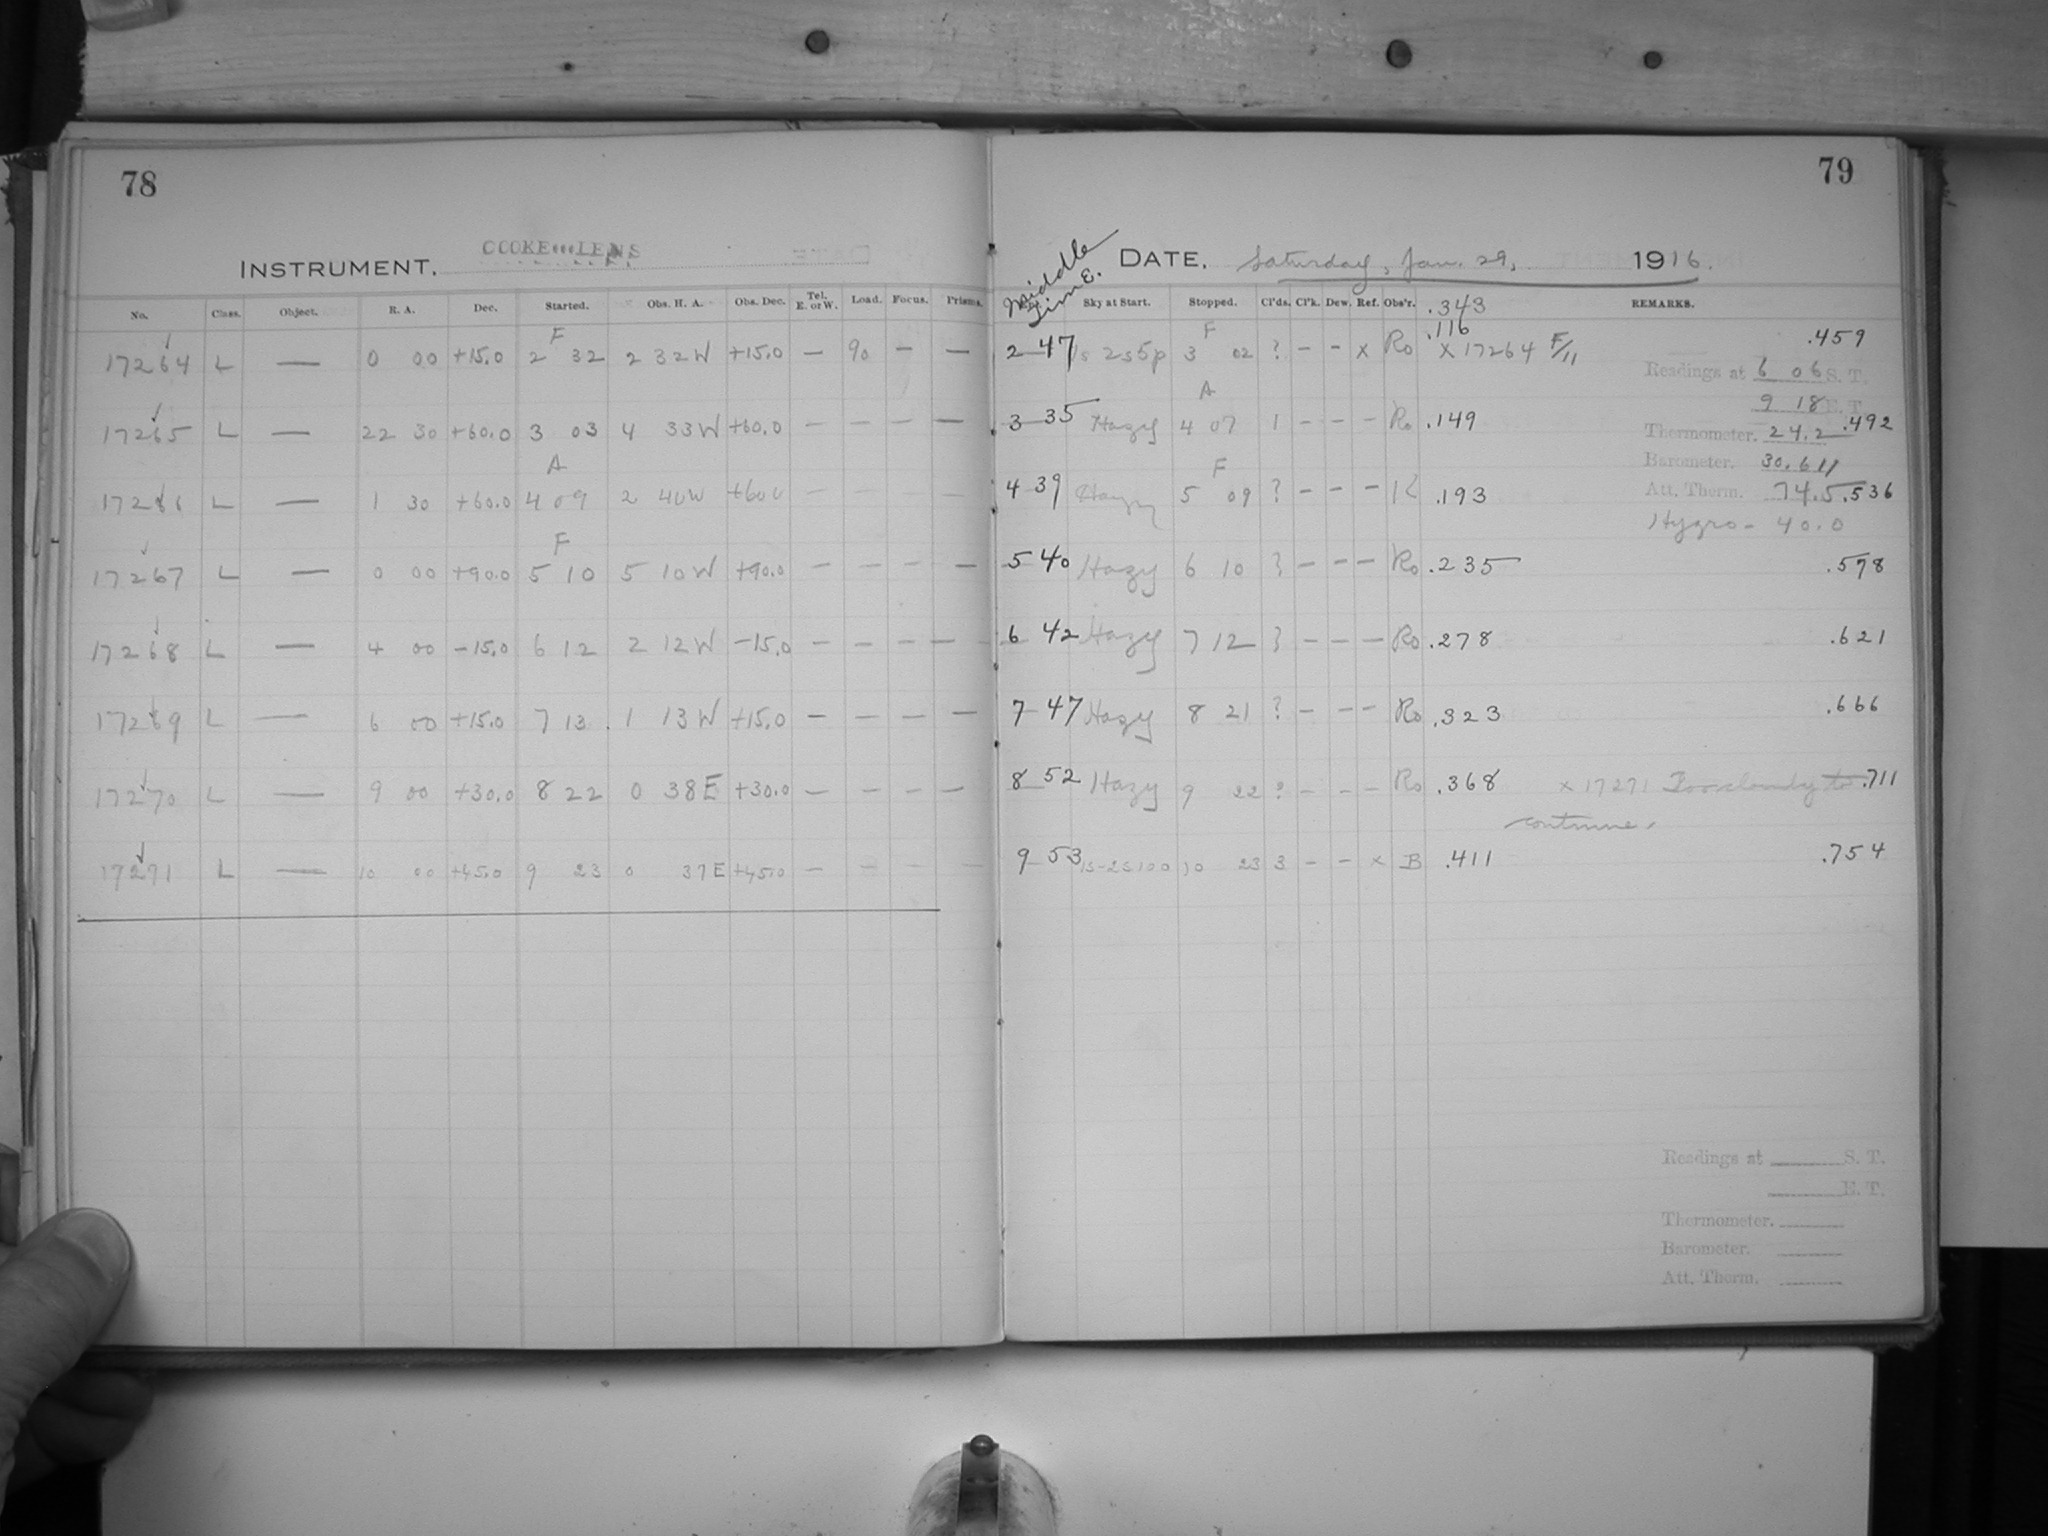 78
INSTRUMENT. COOKE LENS
No. Class. Object. R. A. Dec. Started. Obs. H. A. Obs. Dec. Tel. E. or W. Load. Focus. Prisms.
F
17264 L — 0 00 +15.0 2 32 2 32 W +15.0 — 90 — —
17265 L — 22 30 +60.0 3 03 4 33 W +60.0 — — — —
A
17266 L — 1 30 +60.0 4 09 2 40 W +60.0 — — —
F
17267 L — 0 00 +90.0 5 10 5 10 W +90.0 — — — —
17268 L — 4 00 -15.0 6 12 2 12 W -15.0 — — — —
17269 L — 6 00 +15.0 7 13 1 13 W +15.0 — — — —
17270 L — 9 00 +30.0 8 22 0 38 E +30.0 — — — —
17271 L — 10 00 +45.0 9 23 0 37 E +45.0 — — —
79
DATE. Saturday, Jan. 29, 1916.
Middle
Time.
Sky at Start. Stopped. Cl'ds. Cl'k. Dew. Ref. Obs'r. .343 REMARKS.
F .116 .459
2 47 1s 2s5p 3 02 ? — — x Ro x 17264 F/11
Readings at 6 06 S. T.
A
9 18 E. T.
3 35 Hazy 4 07 1 — — — Ro .149 .492
Thermometer. 24.2
Barometer. 30.611
F
4 39 Hazy 5 09 ? — — — .193 .536
Att. Therm. 74.5
Hygro- 40.0
5 40 Hazy 6 10 ? — — — Ro .235 .578
6 42 Hazy 7 12 ? — — — Ro .278 .621
7 47 Hazy 8 21 ? — — — Ro .323 .666
8 52 Hazy 9 22 ? — — — Ro .368 x 17271 Too cloudy to .711
continue.
9 53 1s-2s100 10 23 3 — — x B .411 .754
Readings at S. T.
E. T.
Thermometer.
Barometer.
Att. Therm.